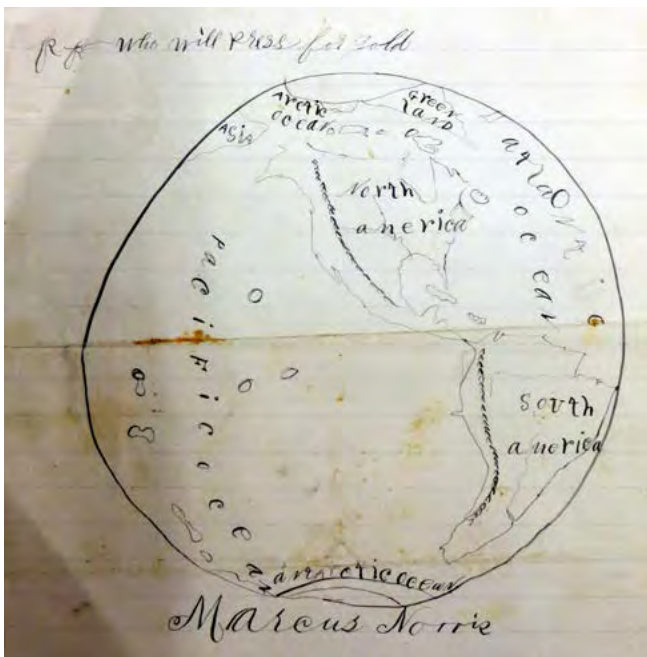 who will Press for gold
Arctic
ocean
Green
land
Asia
North
america
Pacific ocean
ocean
South
america
ocean
Marcus Norris